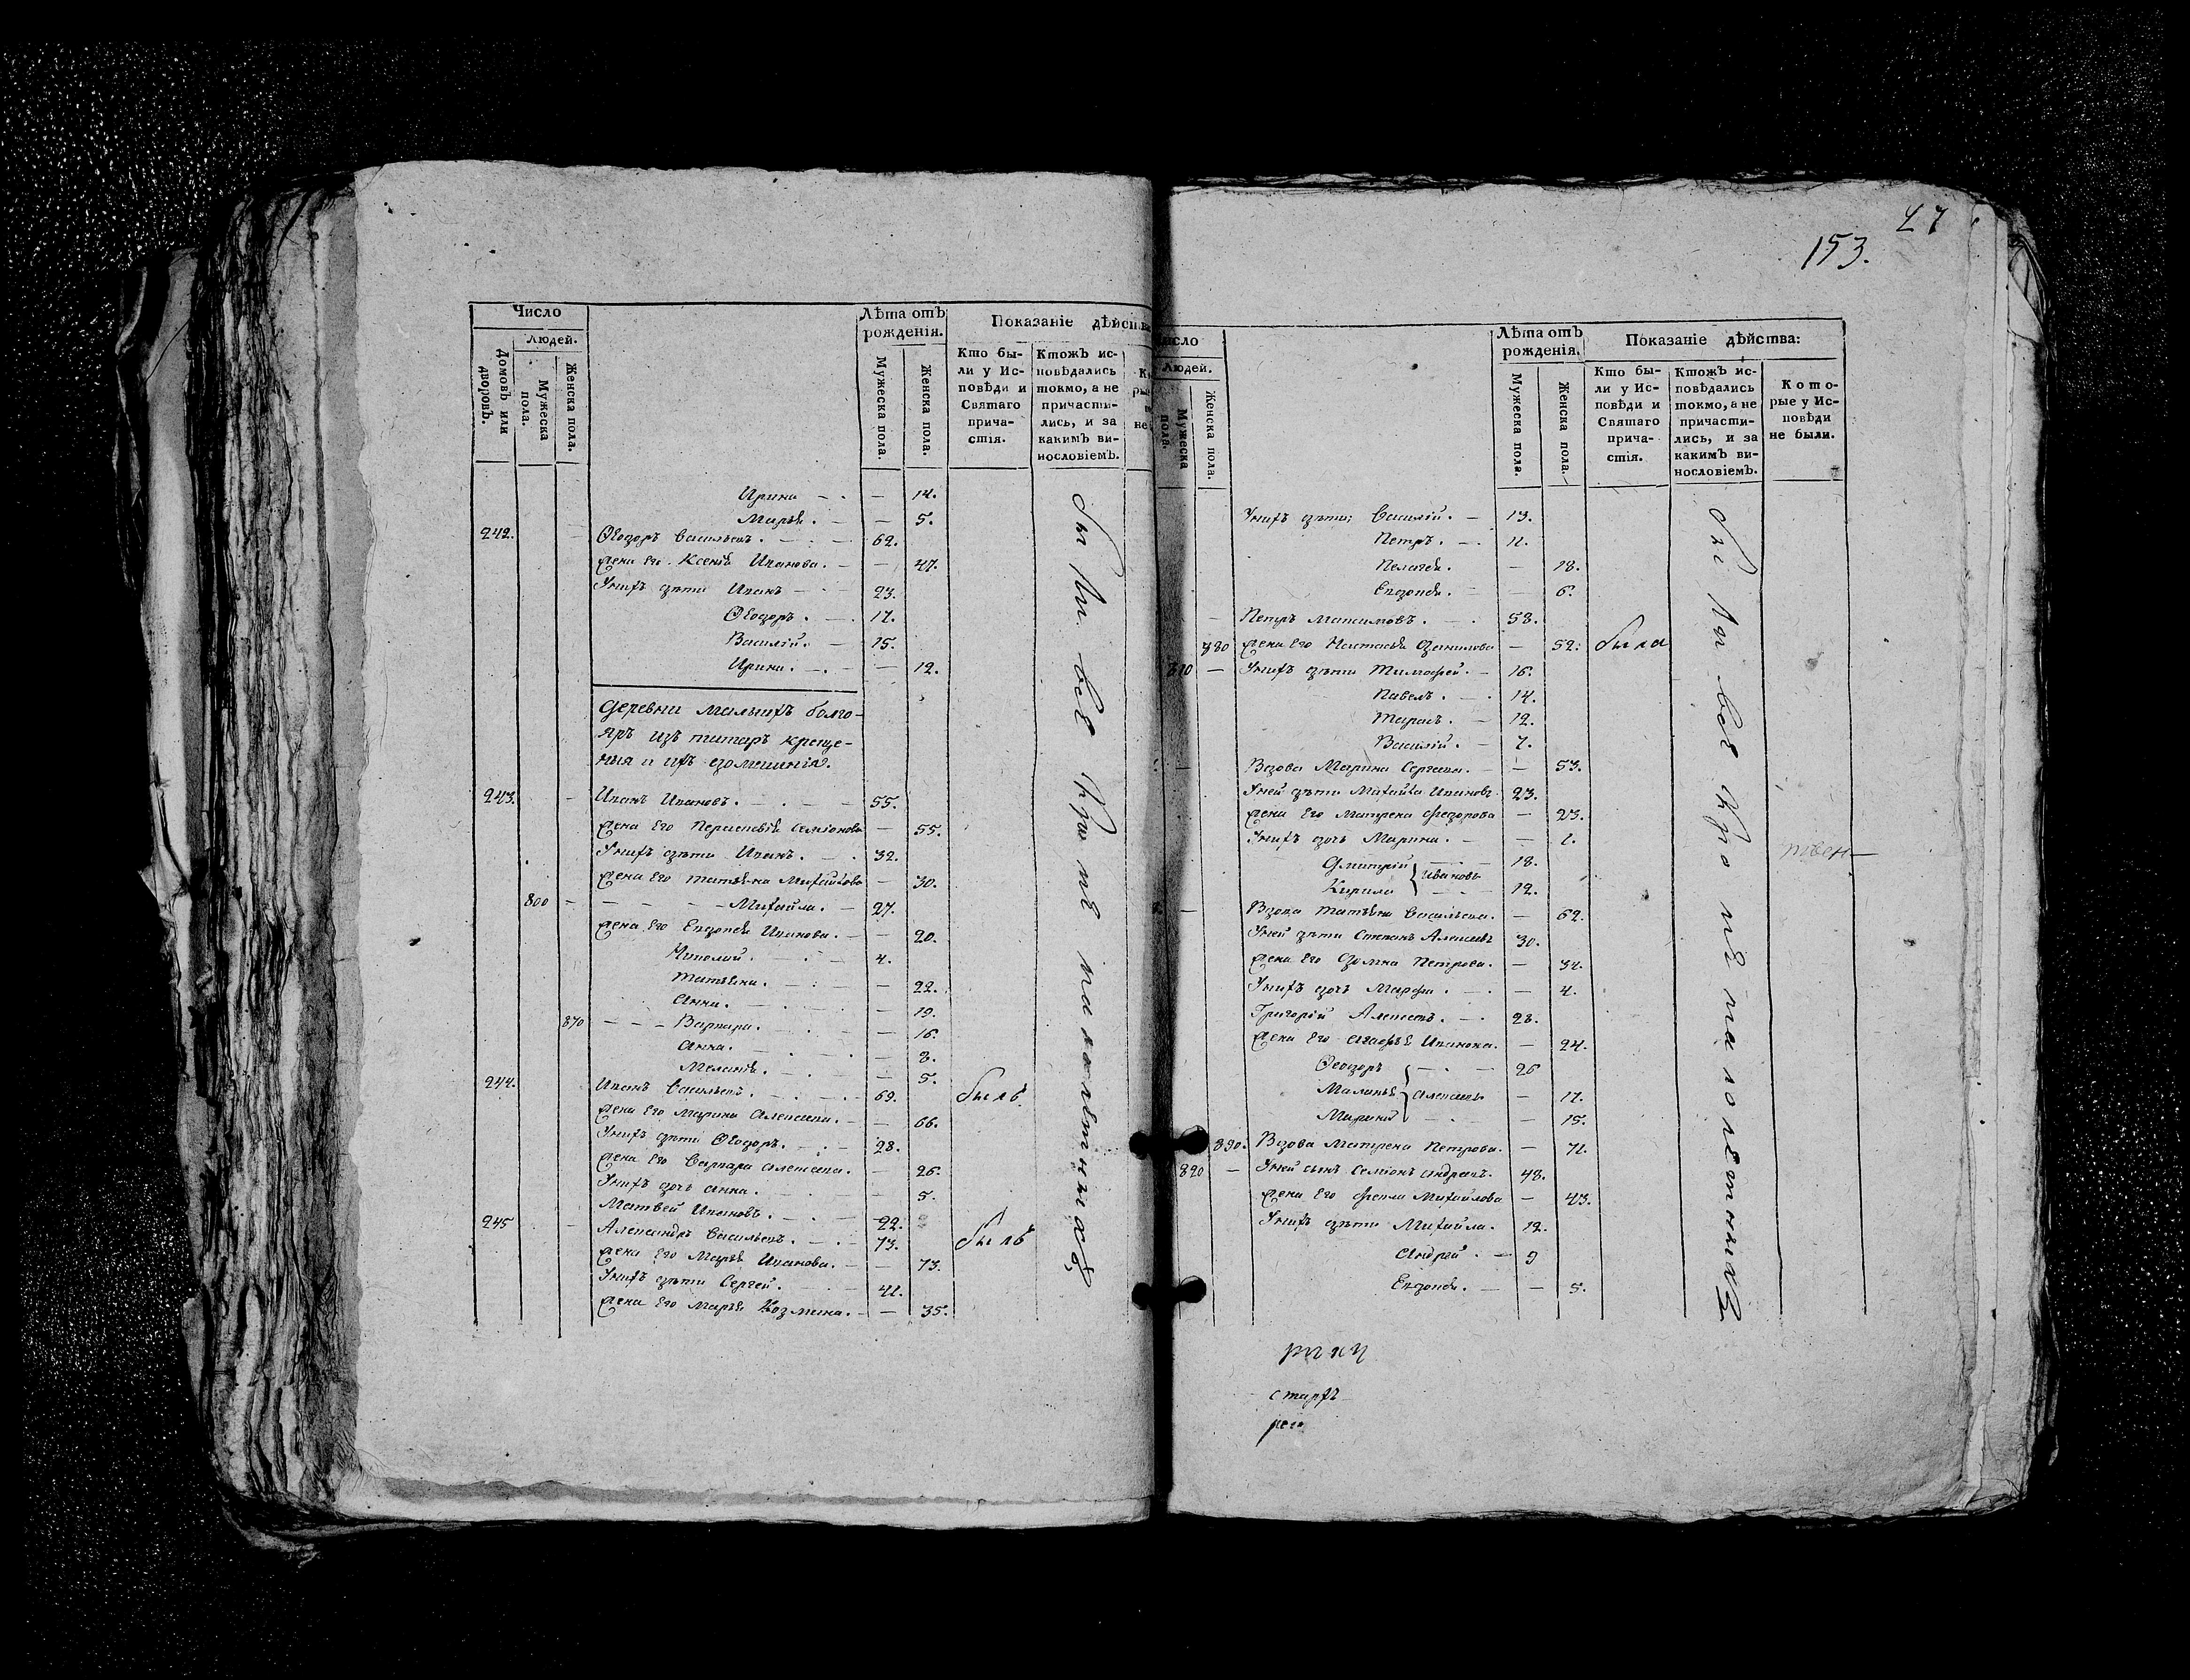 Число
Людей.
Домовъ или дворовъ.
Мужеска пола.
Женска пола.
Лѣта отъ рожденія.
Мужеска пола.
Женска пола.
Показаніе дѣйства
Кто бы-
ли у Ис-
повѣди и
Святаго
прича-
стія.
Ктожъ ис-
повѣдались
токмо, а не
причасти-
лись, и за
какимъ ви-
нословіемъ.
Ирина — 14.
Марья — 5.
242. Ѳеодоръ Васильевъ. — 62.
Жена Его Ксенія Иванова. — 47.
Унихъ дѣти Иванъ — 23.
Ѳеодоръ. — 17.
Василій. — 15.
Ирина. — 12.
Деревни Малыхъ Болго-
яръ изъ татаръ креще-
ныя и ихъ домашнія.
243. Иванъ Ивановъ. — 55.
Жена Его Параскевія Семіонова — 55.
Унихъ дѣти Иванъ. — 32.
Жена Его Татьяна Михайлова — 30.
800 — Михайла. — 27.
Жена Его Евдокія Иванова. — 20.
Николай. — 4.
Татьяна. — 22.
Анна. — 19.
870 — Варвара. — 16.
Анна. — 8.
Меланія. — 5.
244. Иванъ Васильевъ. — 69. былъ
Жена Его Марина Алексеева. — 66.
Унихъ дѣти Ѳеодоръ. — 28.
Жена Его Варвара Алексеева. — 26.
Унихъ дочь Анна. — 5.
Матвей Ивановъ. — 22.
245 Александръ Васильевъ. — 73. былъ
Жена Его Марья Иванова. — 73.
Унихъ дѣти Сергей. — 41.
Жена Его Марья Козмина. — 35.
были все кромѣ малолѣтныхъ
153.
27
Людей.
Мужеска пола.
Женска пола.
Лѣта отъ рожденія.
Мужеска пола.
Женска пола.
Показаніе дѣйства:
Кто бы-
ли у Ис-
повѣди и
Святаго
прича-
стія.
Ктожъ ис-
повѣдались
токмо, а не
причасти-
лись, и за
какимъ ви-
нословіемъ.
Кото-
рые у Ис-
повѣди
не были.
Унихъ дѣти; Василій. — 13.
Петръ. — 11.
Пелагея. — 18.
Евдокея. — 6.
Петръ Максимовъ. — 58.
880 Жена Его Настасья Данилова — 52. была
810 — Унихъ дѣти Тимофей. — 16.
Павелъ. — 14.
Тарасъ. — 12.
Василій. — 7.
Вдова Марина Сергеева. — 53.
Уней дѣти Михайла Ивановъ 23.
Жена Его Матрена Федорова — 23.
Унихъ дочь Марина. — 1.
Дмитрій } Ивановы — 18.
Кирила — 12.
Вдова Татьяна Васильева. — 62.
Уней дѣти Степанъ Алексеевъ 30.
Жена Его Домна Петрова. — 34.
Унихъ дочь Марфа. — 4.
Григорій Алексеевъ. — 28.
Жена Его Агафья Иванова. — 24.
Ѳеодоръ — 26
Маланья } Алексеевы — 17.
Марина — 15.
890. Вдова Матрена Петрова. — 71.
820 — Уней сынъ Семіонъ Андреевъ. 48.
Жена Его Фекла Михайлова — 43.
Унихъ дѣти Михайла. 12.
Андрей. — 9
Евдокея. — 5.
были все кромѣ малолѣтныхъ
руку